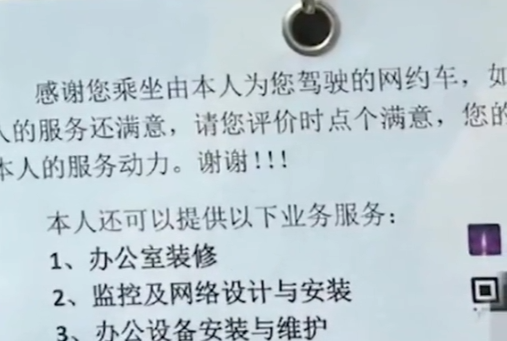 感谢您乘坐由本人为您驾驶的网约车，如
人的服务还满意，请您评价时点个满意，您的
本人的服务动力。谢谢!!!
本人还可以提供以下业务服务：
1、办公室装修
2、监控及网络设计与安装
3、办公设备安装与维护